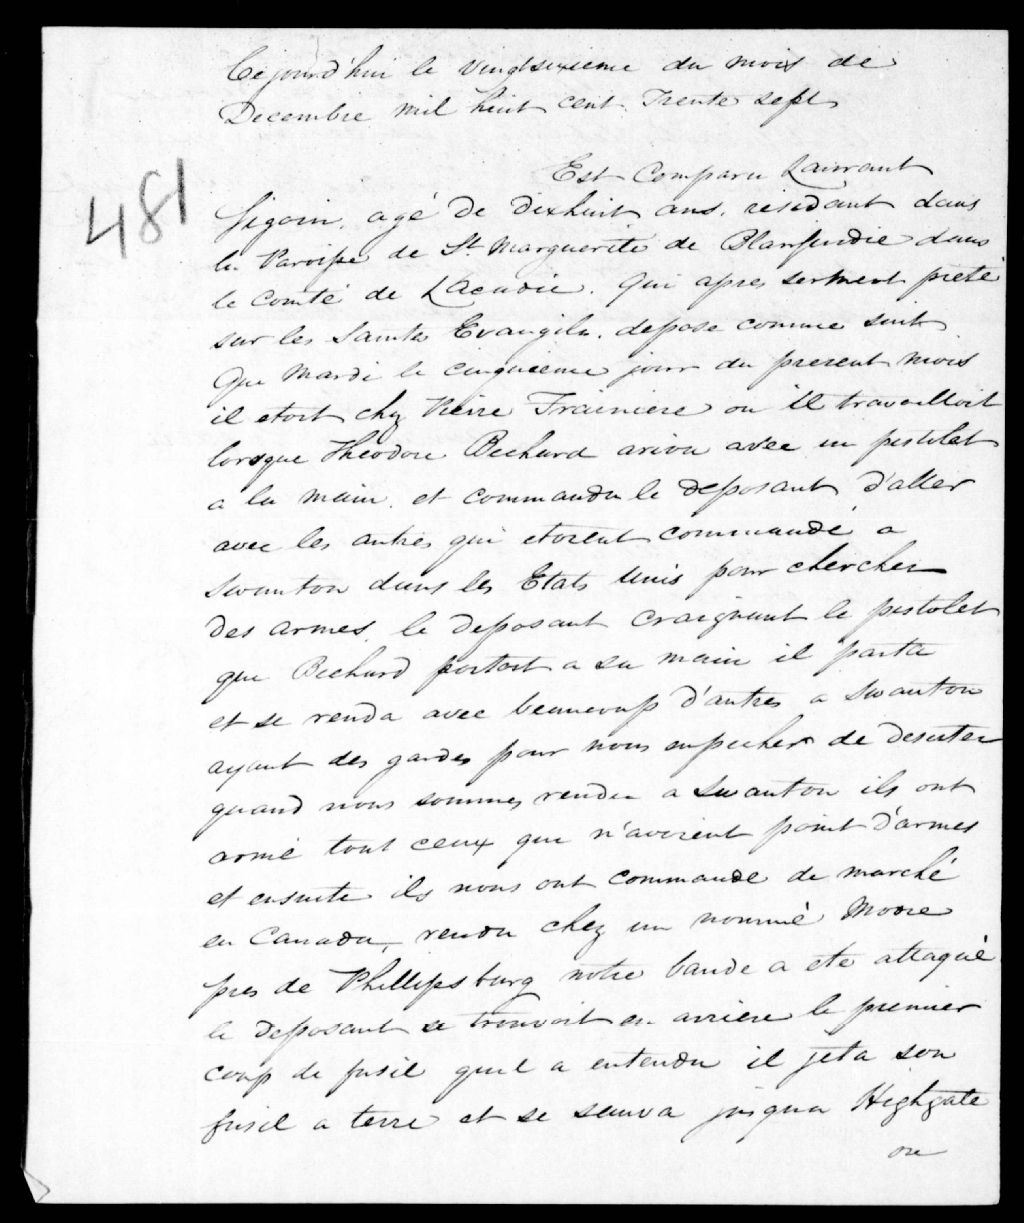 Cejourd'hui le vingtsixieme du mois de
Decembre mil huit cent Trente sept
Est Comparu Laurant
481
Sigoin, agé de dixhuit ans, residant dans
la Paroisse de St Marguerite de Blairfindie dans
le Comté de LAcadie. Qui apres serment preté
sur les Saintes Evangile, depose comme suit
Que Mardi le cinquieme jour du present mois
il etoit chez Pierre Frainiere ou il travailloit
lorsque Theodore Bechard ariva avec un pistolet
a la main, et commanda le deposant d'aller
avec les autres qui etoient commandé a
Swanton dans les Etats Unis pour chercher
des armes, le deposant craignant le pistolet
que Bechard portoit a sa main il parta
et se renda avec beaucoup d'autres a Swanton
ayant des gardes pour nous enpecher de deserter
quand nous sommes rendu a Swanton ils ont
armé tout ceux que n'avoient point d'armes
et ensuite ils nous ont commandé de marché
en Canada, rendu chez un nommé Moore
pres de Phillipsburg notre bande a ete attaqué
le deposant se trouvoit en arriere le premier
coup de fusil quil a entendu il jeta son
fusil a terre et se sauva jusqua Highgate